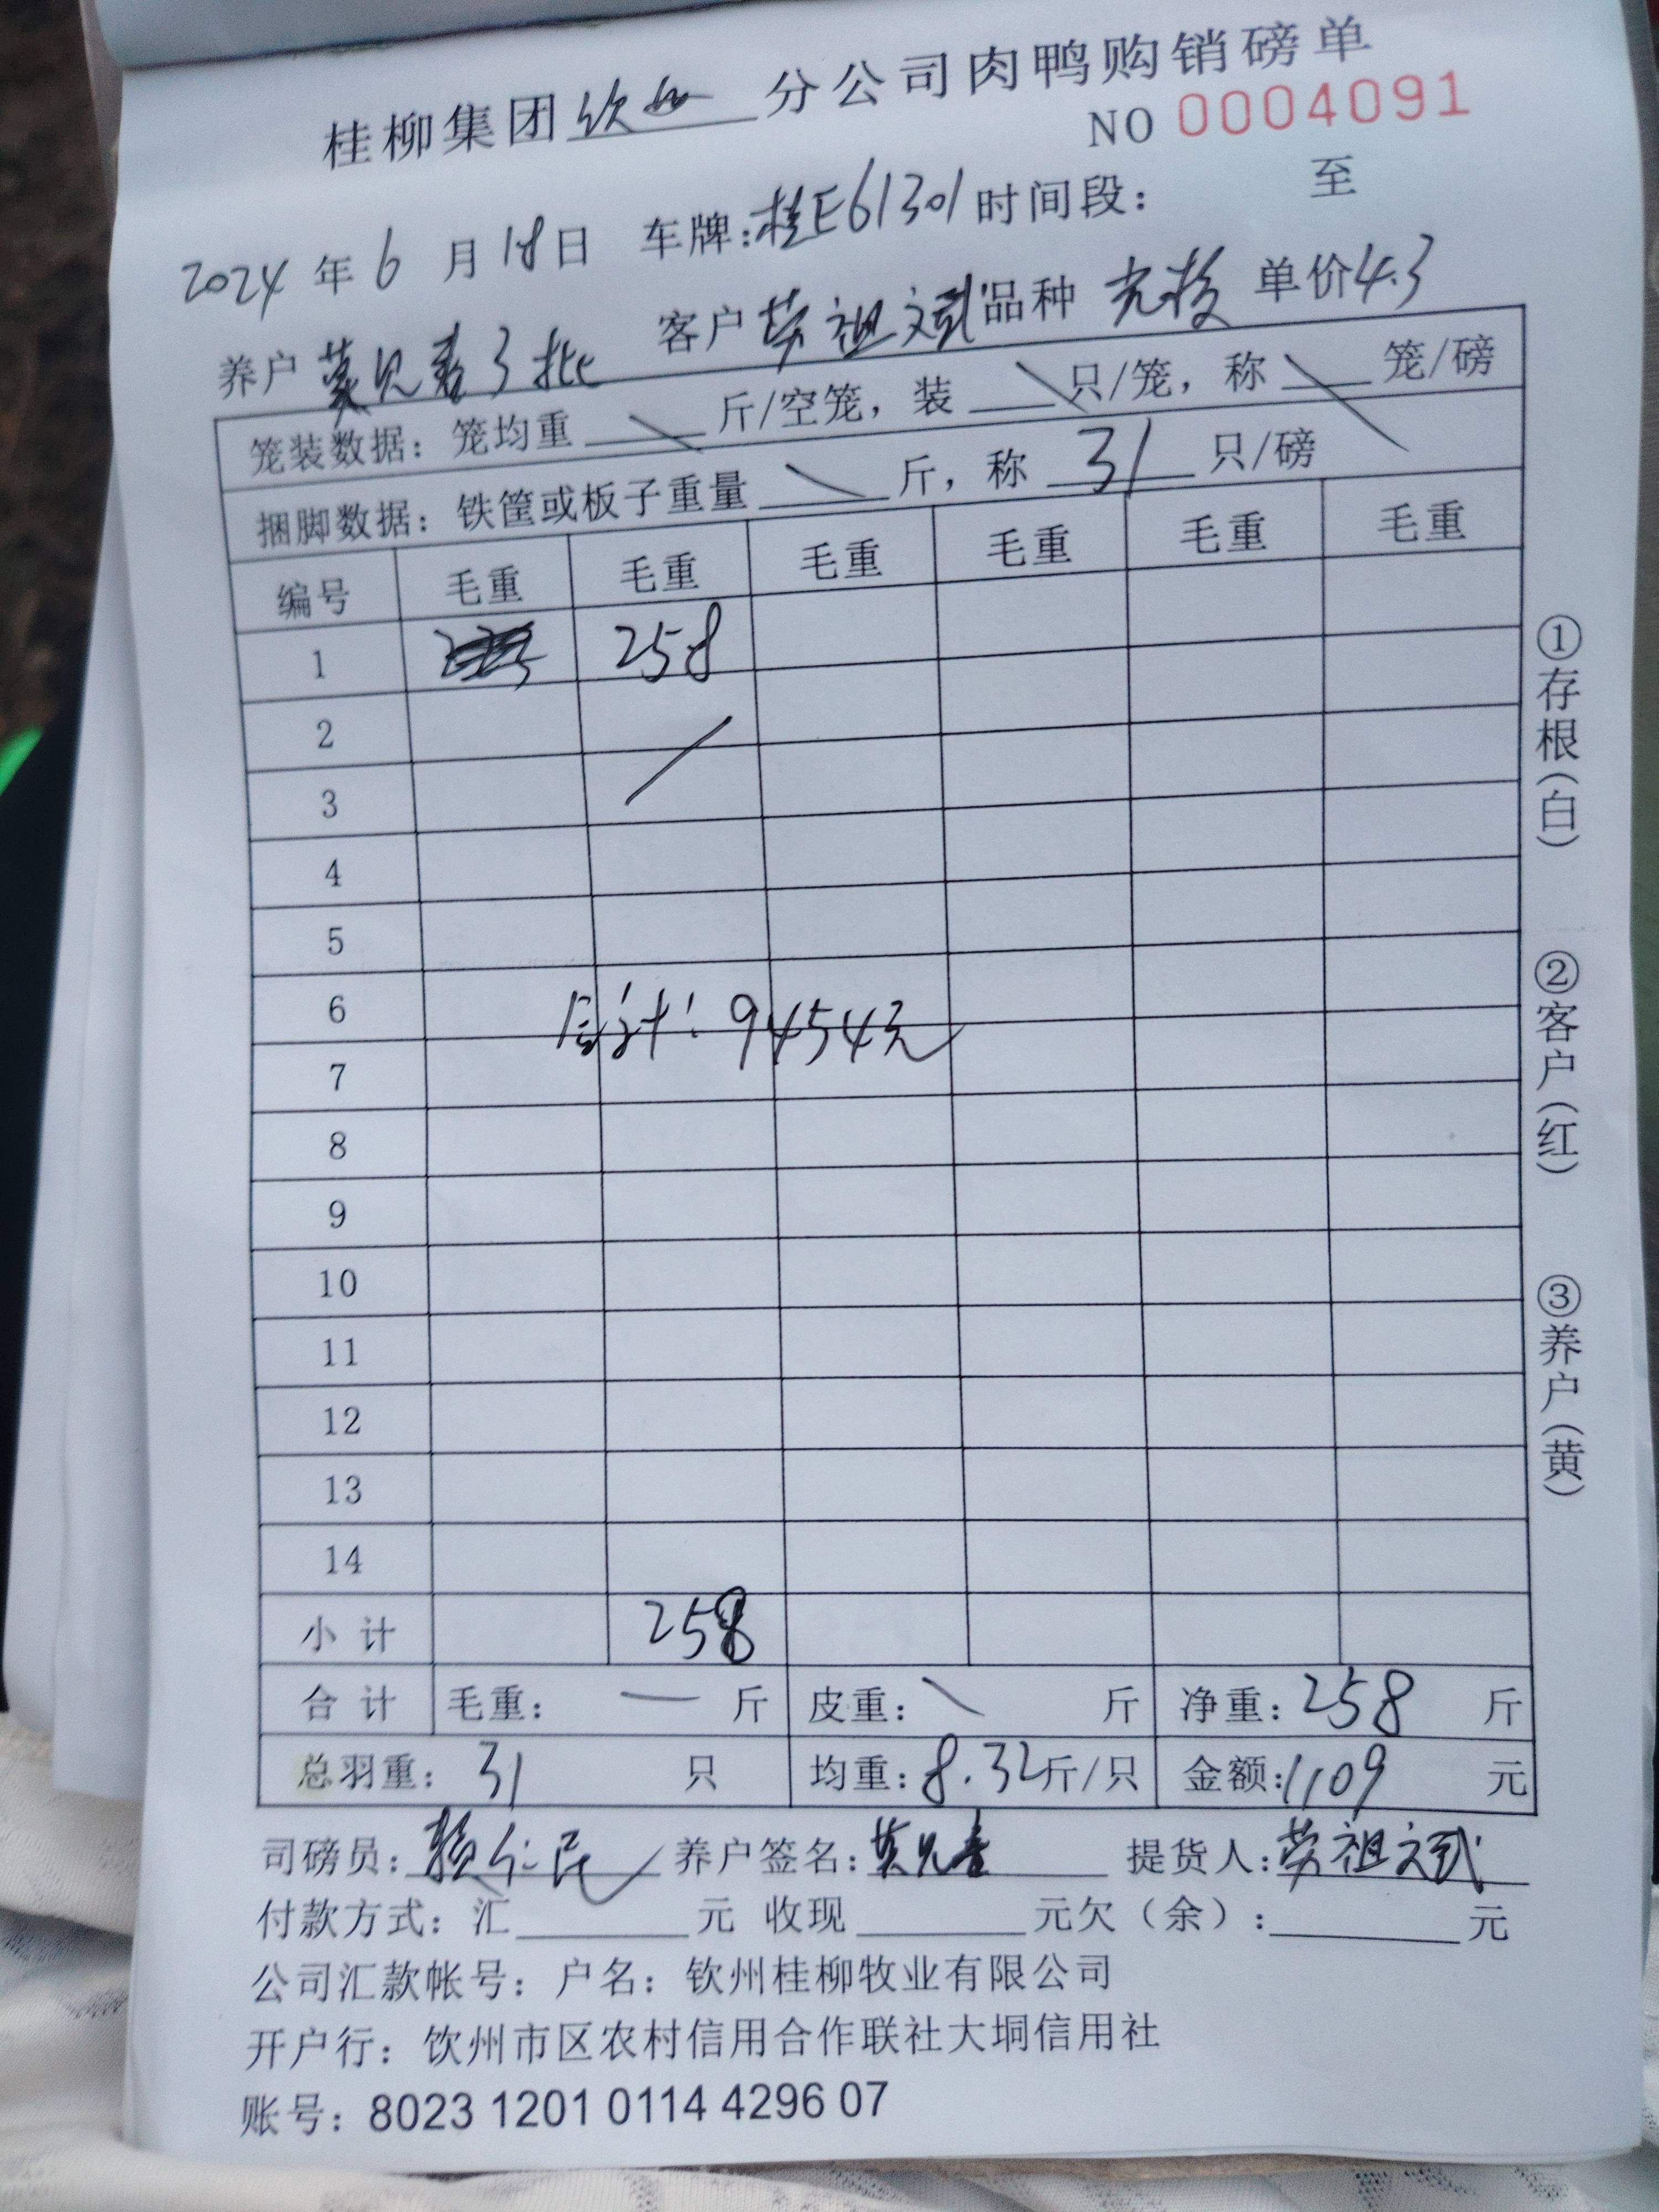 桂柳集团钦州分公司肉鸭购销磅单
NO 0004091
2024年6月18日 车牌:桂E61301时间段: 至
养户 3批 客户劳祖斌 品种 单价4.3
笼装数据:笼均重 斤/空笼,装 只/笼,称 笼/磅
捆脚数据:铁筐或板子重量 斤,称 31 只/磅
编号 毛重 毛重 毛重 毛重 毛重 毛重
1 258
2
3
4
5
6
总计:94544元
7
8
9
10
11
12
13
14
小计 258
合计 毛重: 一 斤 皮重: 斤 净重:258 斤
总羽重: 31 只 均重:8.32斤/只 金额:1109 元
司磅员: 养户签名: 提货人:劳祖斌
付款方式:汇 元 收现 元欠(余): 元
公司汇款帐号:户名:钦州桂柳牧业有限公司
开户行:饮州市区农村信用合作联社大垌信用社
账号:8023 1201 0114 4296 07
①存根(白)
②客户(红)
③养户(黄)